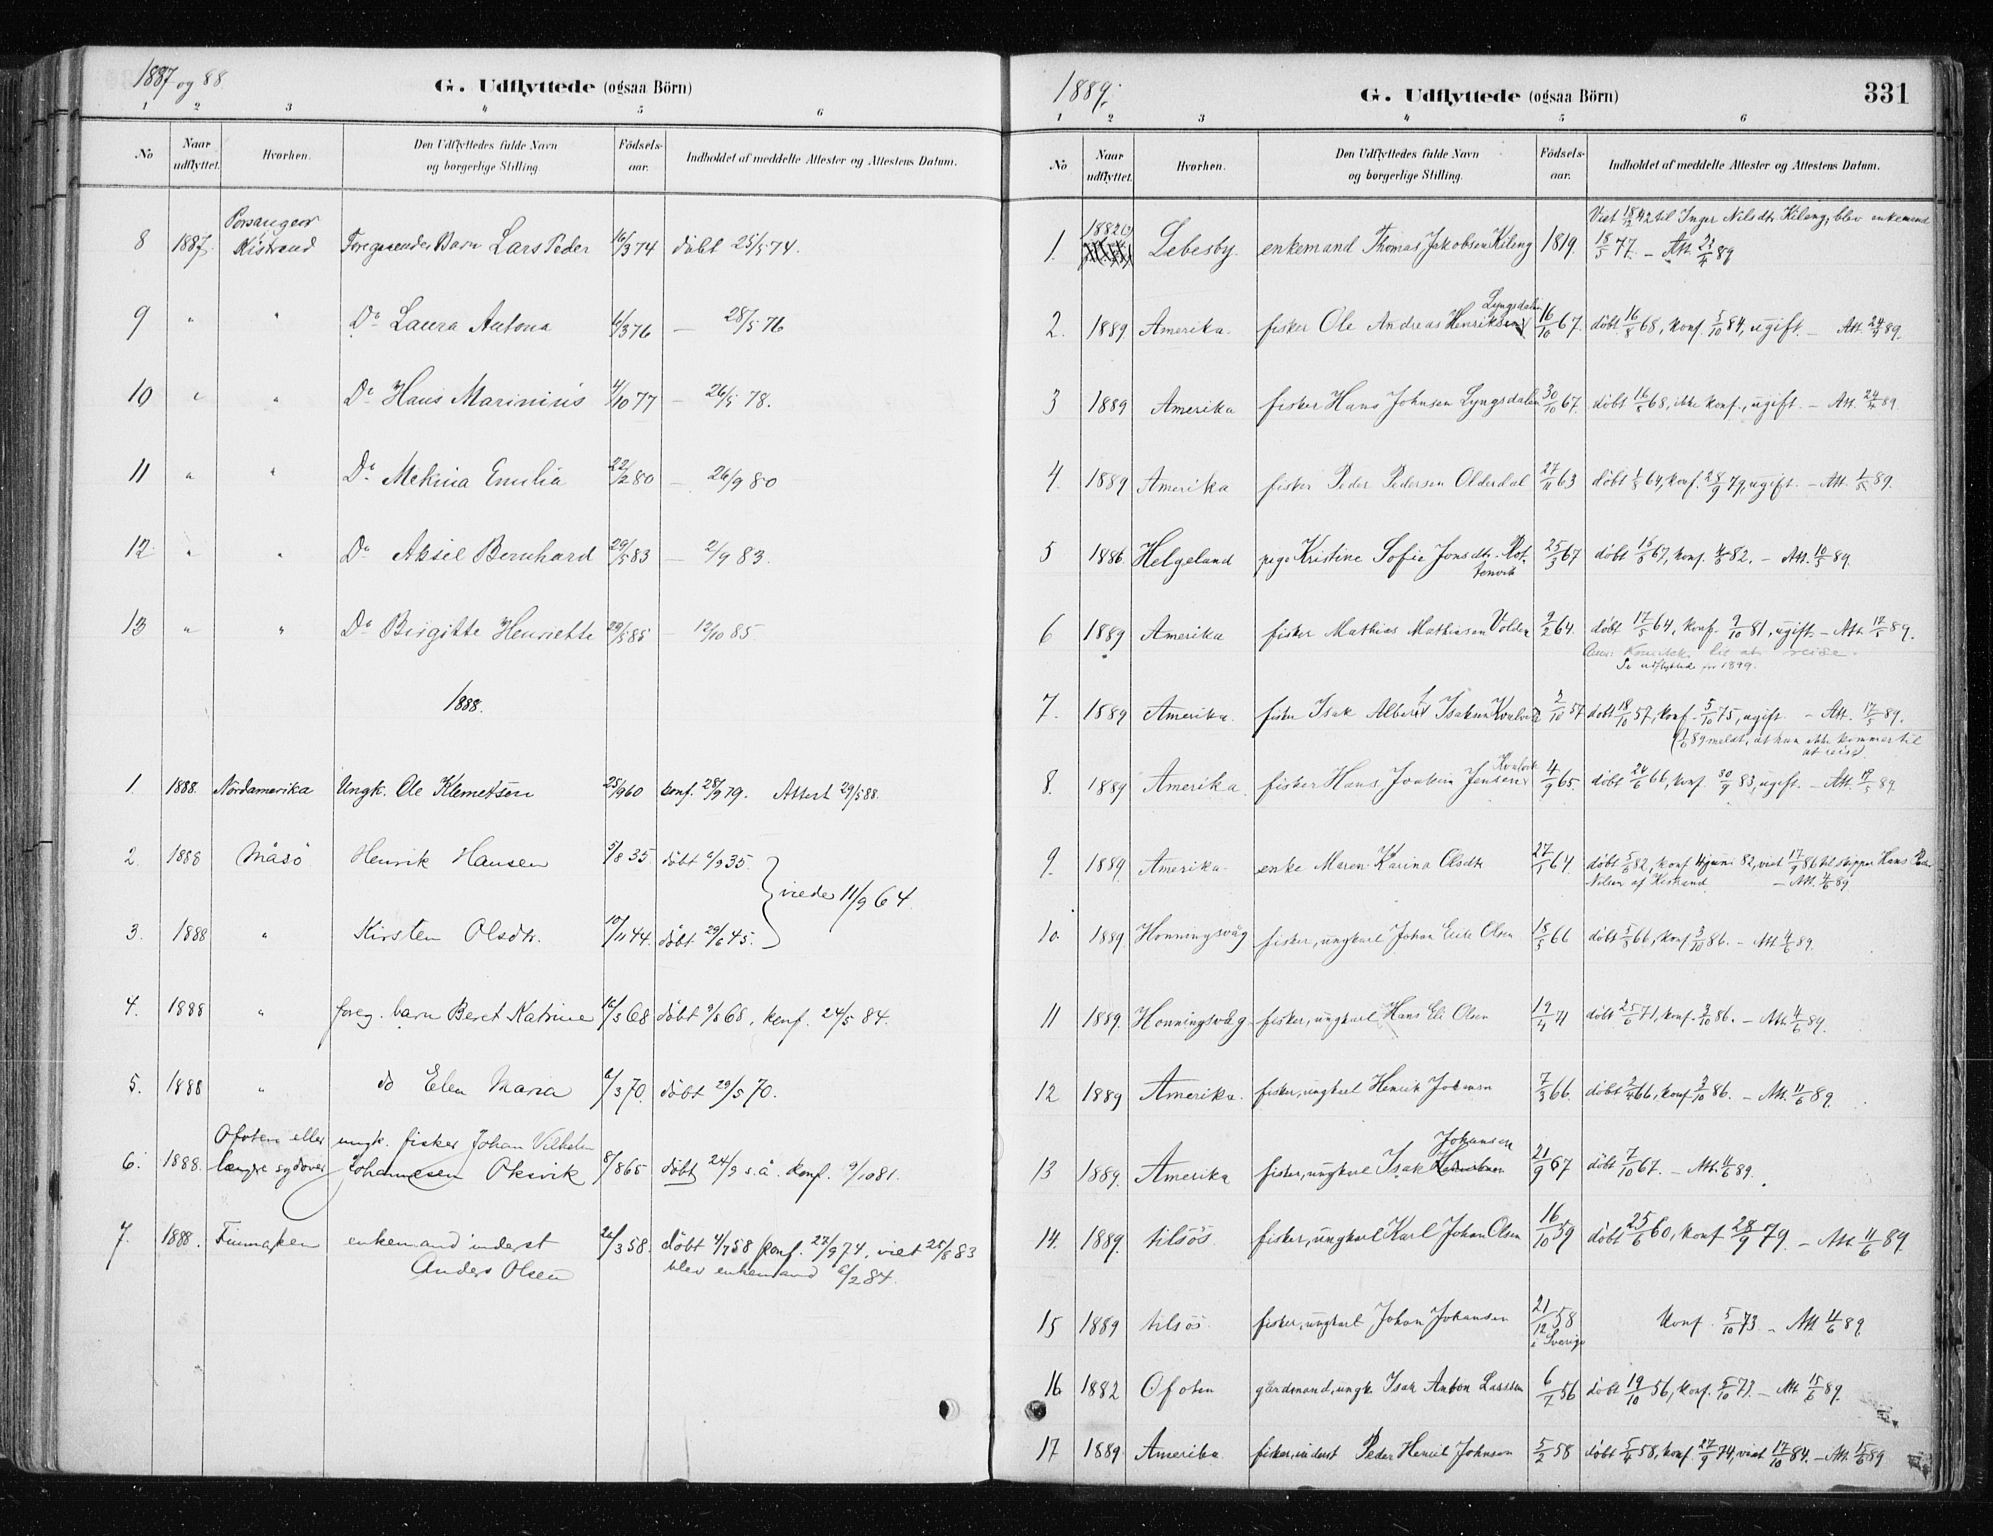 1887 og 88
G. Udflyttede (ogsaa Börn)
1 2 3 4 5 6
No Naar udflyttet. Hvorhen. Den Udflyttedes fulde Navn og borgerlige Stilling Födsels-aar. Indholdet af meddelte Attester og Attestens Datum.
8 1887. Kistrand Foregaaendes Barn Lars Peder 16/3 74 döbt 25/5 74.
9 " " Do Laura Antona 3 76 — 28/5 76
10 " " Do Hans Marinius 4/10 77 — 26/5 78.
11 " " Do Mekina Emilia 22/2 80 — 26/9 80
12 " " Do Aksel Bernhard 29/5 83 — 2/9 83.
13 " " Do Birgitte Henriette 29/5 85 — 12/10 85.
1888.
1 1888. Nordamerika Ungk. Ole Klemetsen 25/9 60 konf. 28/9 79. Attest 29/5 88.
2. 1888 Måsö Henrik Hansen 5/8 35. döbt 6/9 35.
viede 11/9 64.
3. 1888 " Kirsten Olsdtr. 10/11 44. döbt 29/6 45.
4. 1888 " foreg. barn Beret Katrine 16/5 68 döbt 9/8 68, konf. 24/5 84.
5. 1888 " do Elen Maria 6/3 70. döbt 29/5 70.
Ofoten eller ungk. fisker Johan Vilhelm
6. 1888. længre sydover Johannesen Oksvik 8/8 65 döbt 24/9 s.å. konf. 9/10 81.
7. 1888. Finmarken enkemand inderst 26/3 58. döbt 4/7 58 konf. 27/9 74. viet 25/8 83
Anders Olsen blev enkemand 6/2 84.
1889.
G. Udflyttede (ogsaa Börn)
331
1 2 3 4 5 6
No Naar udflyttet. Hvorhen. Den Udflyttedes fulde Navn og borgerlige Stilling. Födsels-aar. Indholdet af meddelte Attester og Attestens Datum.
Viet 18/2 42 til Inger Nilsdtr Kileng, blev enkemand
1. 1882 Lebesby. enkemand Thomas Jakobsen Kileng 1819. 18/5 77. — Att. 23/4 89
Lyngsdalen
2. 1889 Amerika. fisker Ole Andreas Henriksen 16/10 67. döbt 16/8 68, konf. 5/10 84, ugift. — Att. 24/4 89.
3 1889 Amerika fisker Hans Johnsen Lyngsdalen 30/10 67. döbt 16/8 68, ikke konf., ugift. — Att. 24/4 89.
4. 1889 Amerika fisker Peder Pedersen Olderdal 27/11 63 döbt 1/5 64, konf. 28/9 79, ugift. — Att. 1/5 89.
5 1886. Helgeland pige Kristine Sofie Jonsdtr. Rot-
tenvik 25/3 67 döbt 15/6 67, konf. 82. — Att. 10/5 89.
6 1889 Amerika fisker Mathias Mathiesen Volden 9/2 64. döbt 17/5 64, konf. 9/10 81, ugift. — Att. 17/5 89.
Se udflyttede for 1899.
7. 1889 Amerika. fisker Isak Albert Isaksen Kvalvik 2/10 57 döbt 18/10 57, konf. 5/10 75, ugift. — Att. 17/5 89.
89 meldt, at han ikke kommer til
at reise)
Kvalvik
8. 1889 Amerika. fisker Hans Joakim Jensen 4/9 65. döbt 24/6 66, konf. 30/9 83, ugift. — Att. 17/5 89.
9. 1889. Amerika enke Maren Karina Olsdtr 27/1 64. döbt 5/6 82, konf. 4 juni 82, viet 17/9 86 til skipper Hans Peder
Nilsen af Kistrand. — Att. 4/6 89
10. 1889 Honningsvåg fisker, ungkarl Johan Erik Olsen 18/3 66 döbt 5/8 66, konf. 3/10 86. — Att. 4/6 89.
11 1889. Honningsvåg fisker, ungkarl Hans Eli Olsen 19/4 71 döbt 25/6 71, konf. 3/10 86. — Att. 4/6 89.
12 1889 Amerika. fisker, ungkarl Henrik Johnsen 7/3 66. döbt 2/4 66, konf. 3/10 86. — Att. 11/6 89.
Johansen
13 1889. Amerika fisker, ungkarl Isak Henriksen 21/9 67 döbt 7/10 67. — Att. 11/6 89.
14. 1889. tilsös. fisker, ungkarl Karl Johan Olsen 16/10 59 döbt 25/6 60, konf. 28/9 79. — Att. 11/6 89.
15 1889 tilsös. fisker, ungkarl Johan Johansen 21/12 58 konf. 5/10 73. — Att. 11/6 89
i Sverige
16 1882 Ofoten gårdmand, ungk. Isak Anton Larsen 6/7 56 döbt 19/10 56, konf. 5/10 73. — Att. 15/6 89.
17 1889 Amerika. fisker, inderst Peder Henrik Johnsen 5/2 58 döbt 5/4 58, konf. 27/9 74, viet 17/10 84. — Att. 15/6 89